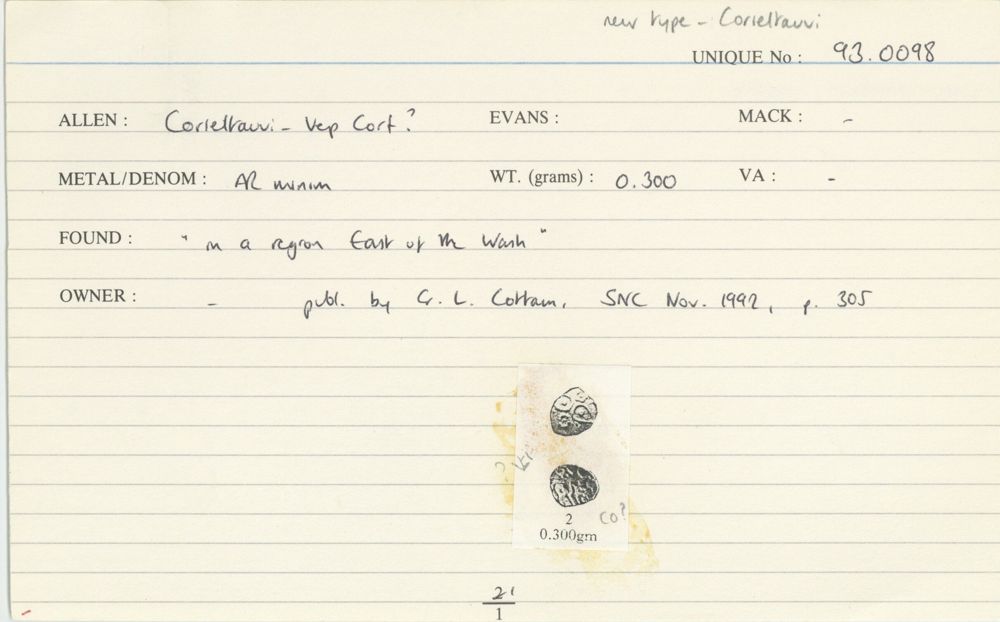 new type - Corieltauvi
UNIQUE No : 93.0098
ALLEN : Corieltauvi - Vep Corf? EVANS : MACK : -
METAL/DENOM : AR minim WT. (grams) : 0.300 VA : -
FOUND : "in a region East of the Wash"
OWNER : - publ. by G. L. Cottam, SNC Nov. 1992, p. 305
2 CO?
0.300gm
21
1